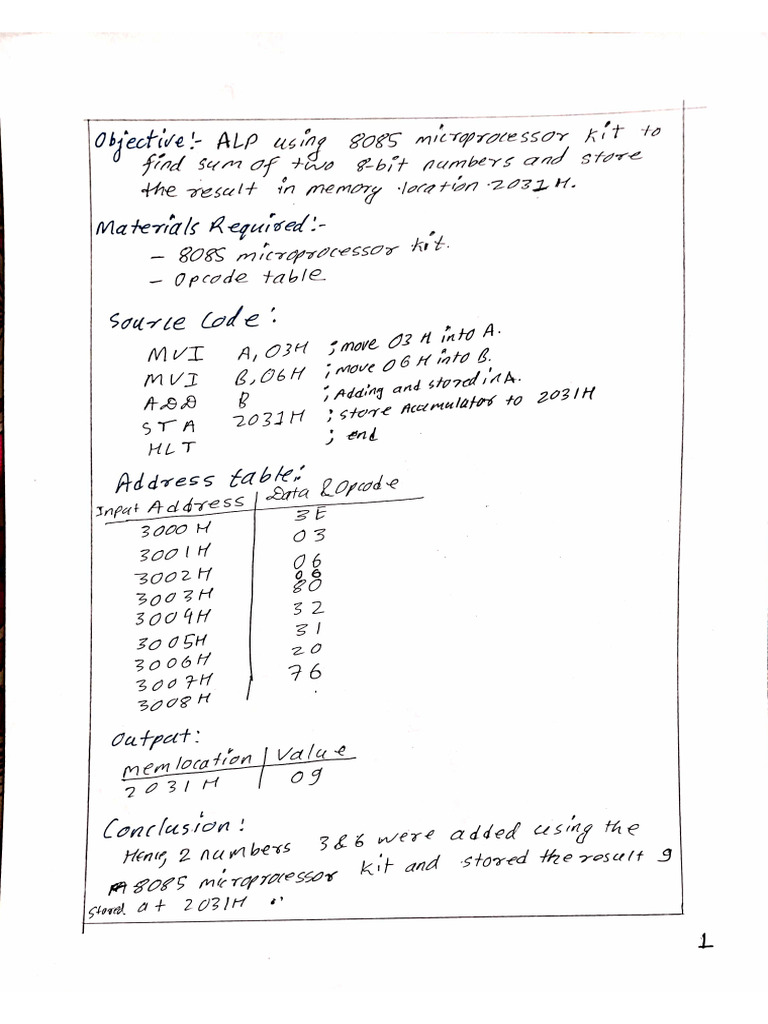 Objective:- ALP using 8085 microprocessor kit to
find sum of two 8-bit numbers and store
the result in memory location 2031H.
Materials Required:-
- 8085 microprocessor kit.
- Opcode table
Source Code:
MVI A, 03H ; move 03 H into A.
MVI B, 06H ; move 06 H into B.
ADD B ; Adding and stored in A.
STA 2031H ; store Accumulator to 2031H
HLT ; end
Address table:
Input Address | Data & Opcode
3000 H 3E
3001H 03
3002H 06
3003H 06
3004H 80
3005H 32
3006H 31
3007H 20
3008H 76
Output:
mem location | Value
2031 H 09
Conclusion:
Hence, 2 numbers 3 & 6 were added using the
8085 microprocessor kit and stored the result 9
stored at 2031H
1